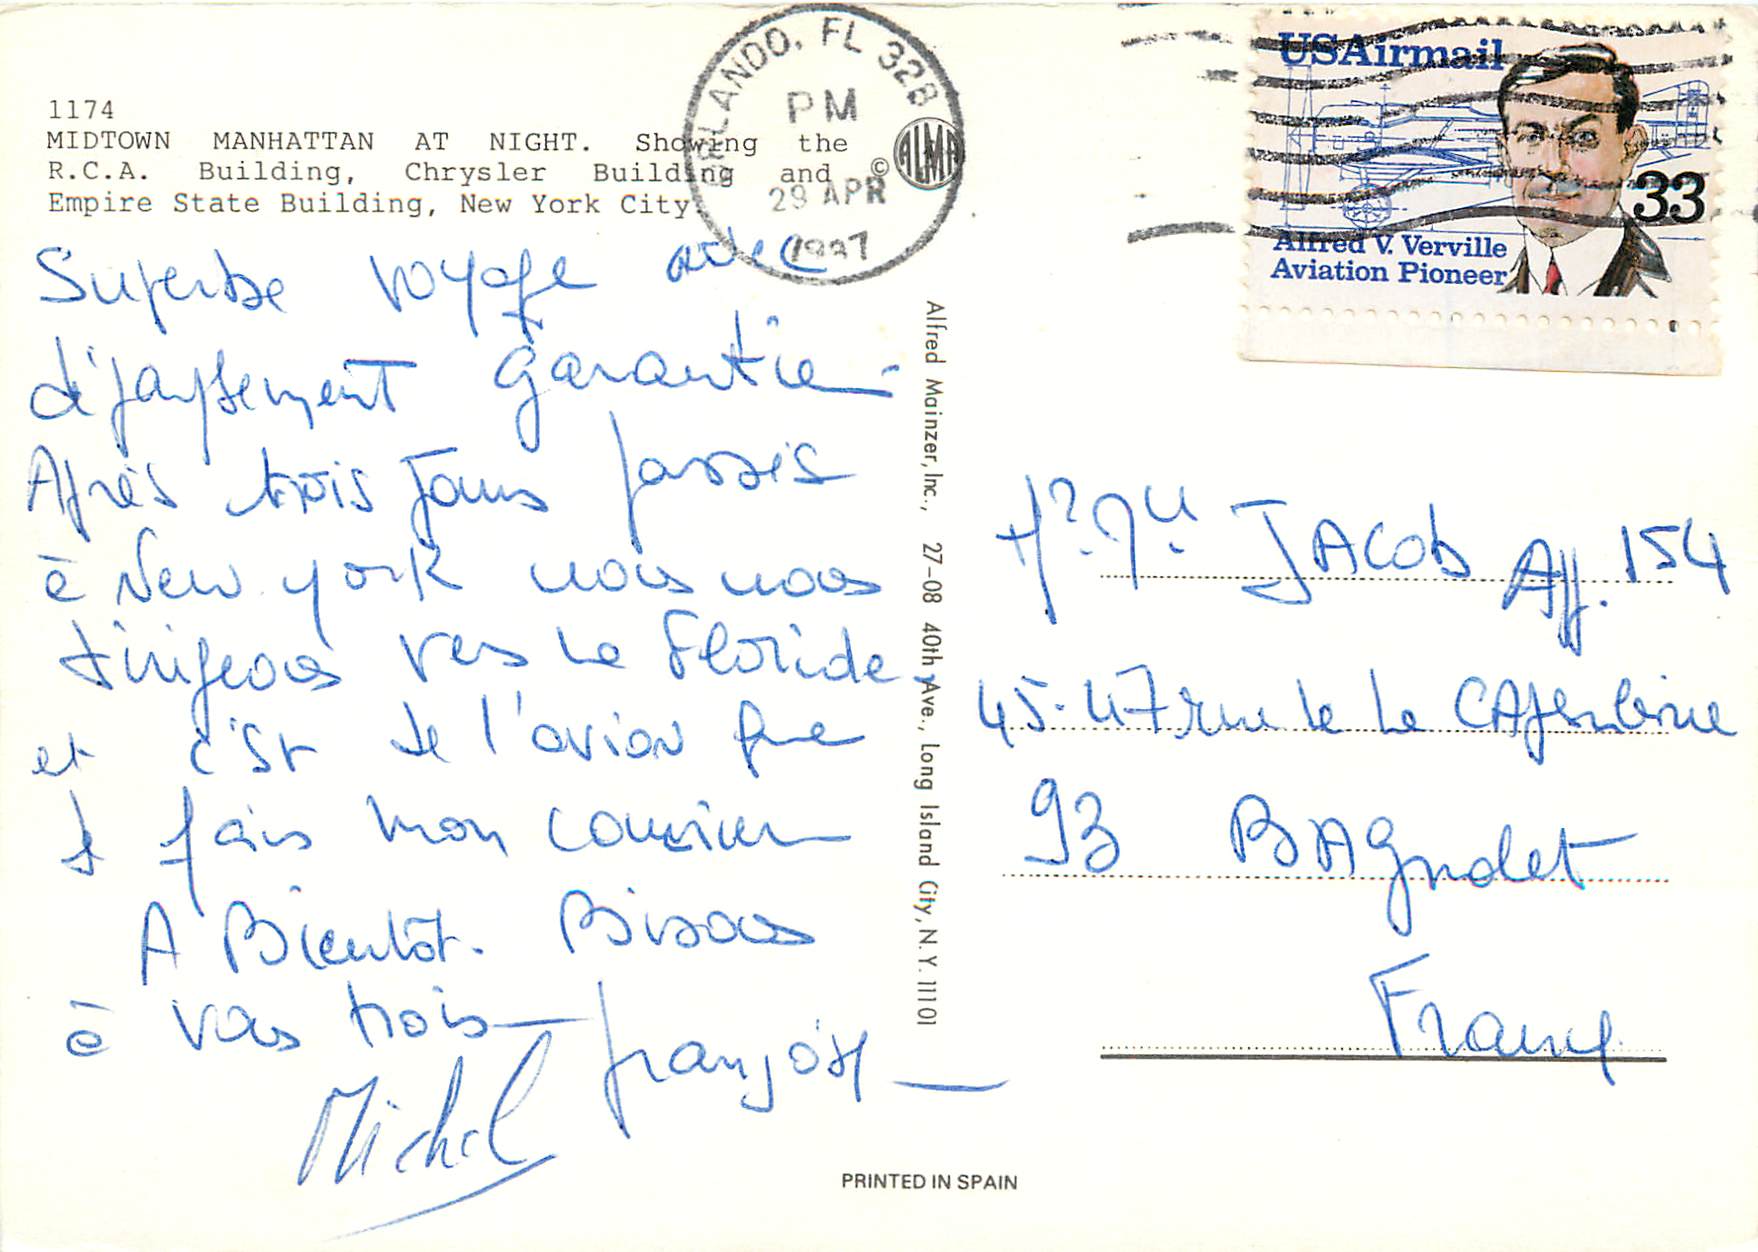 1174
MIDTOWN MANHATTAN AT NIGHT. Showing the
R.C.A. Building, Chrysler Building and © ALMA
Empire State Building, New York City.
ORLANDO, FL 328
PM
29 APR
USAirmail
33
Alfred V. Verville
Aviation Pioneer
Superbe voyage avec
dépaysement garantie.
Après trois jours passés
à New York nous nous
dirigeons vers la Floride
et c'est de l'avion que
je fais mon courrier
A Bientôt. Bisous
à vous trois
Françoise
Michel
Alfred Mainzer, Inc., 27-08 40th Ave., Long Island City, N.Y. 11101
JACOB App. 154
45-47 rue de la CApsulerie
93 BAgnolet
France
PRINTED IN SPAIN